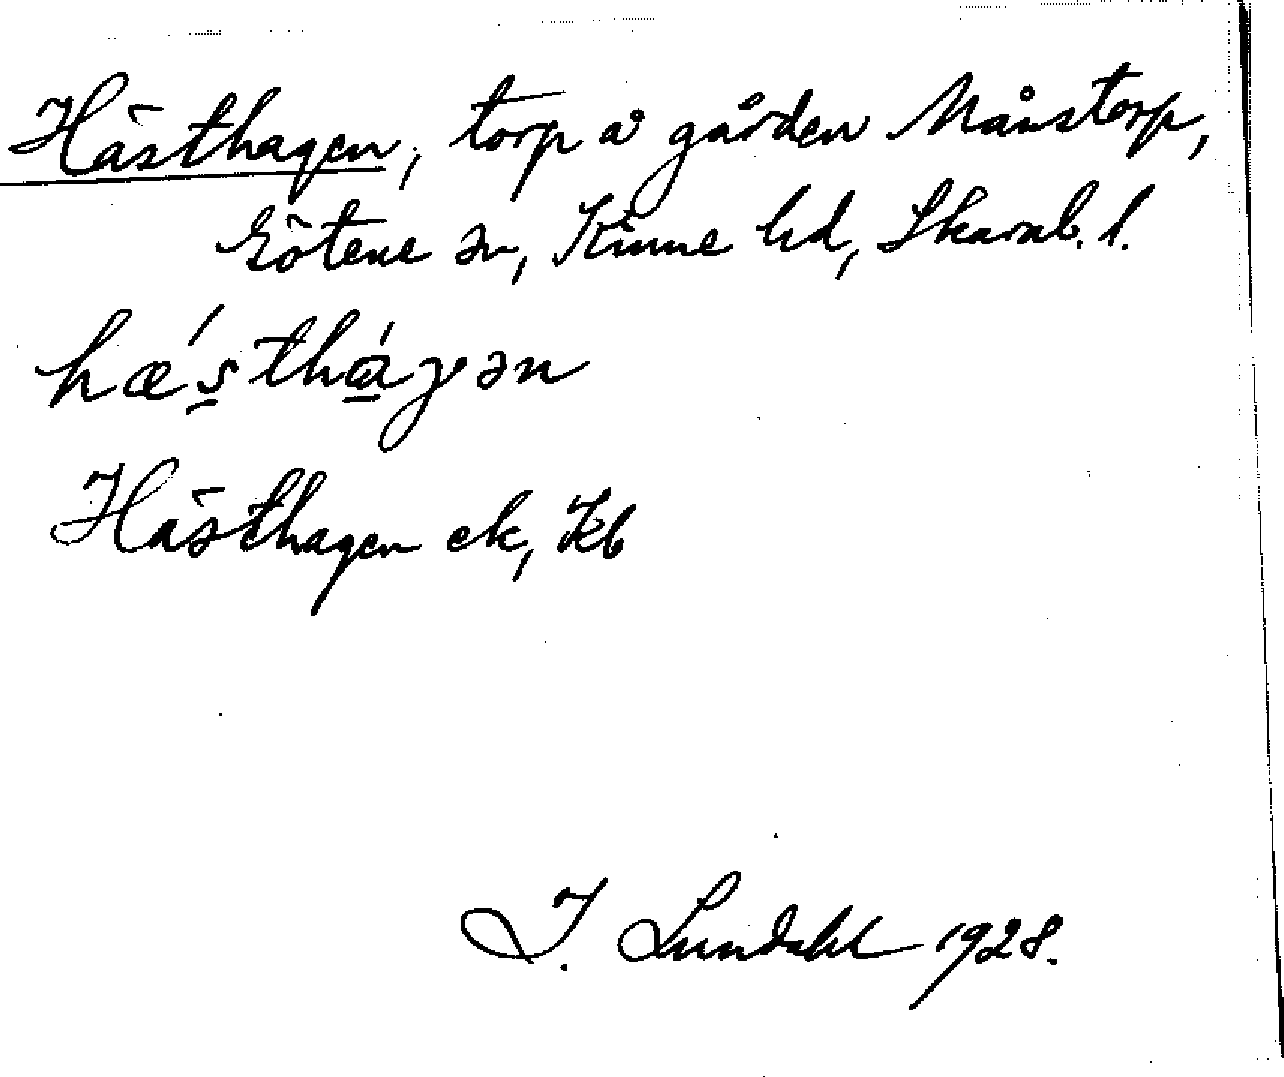 Hästhagen, torp å gården Månstorp,
Götene sn, Kinne hd, Skarab. l.
hæ´s̠thɑ̠´gən
Hästhagen ek, Kb
I. Lundahl 1928.